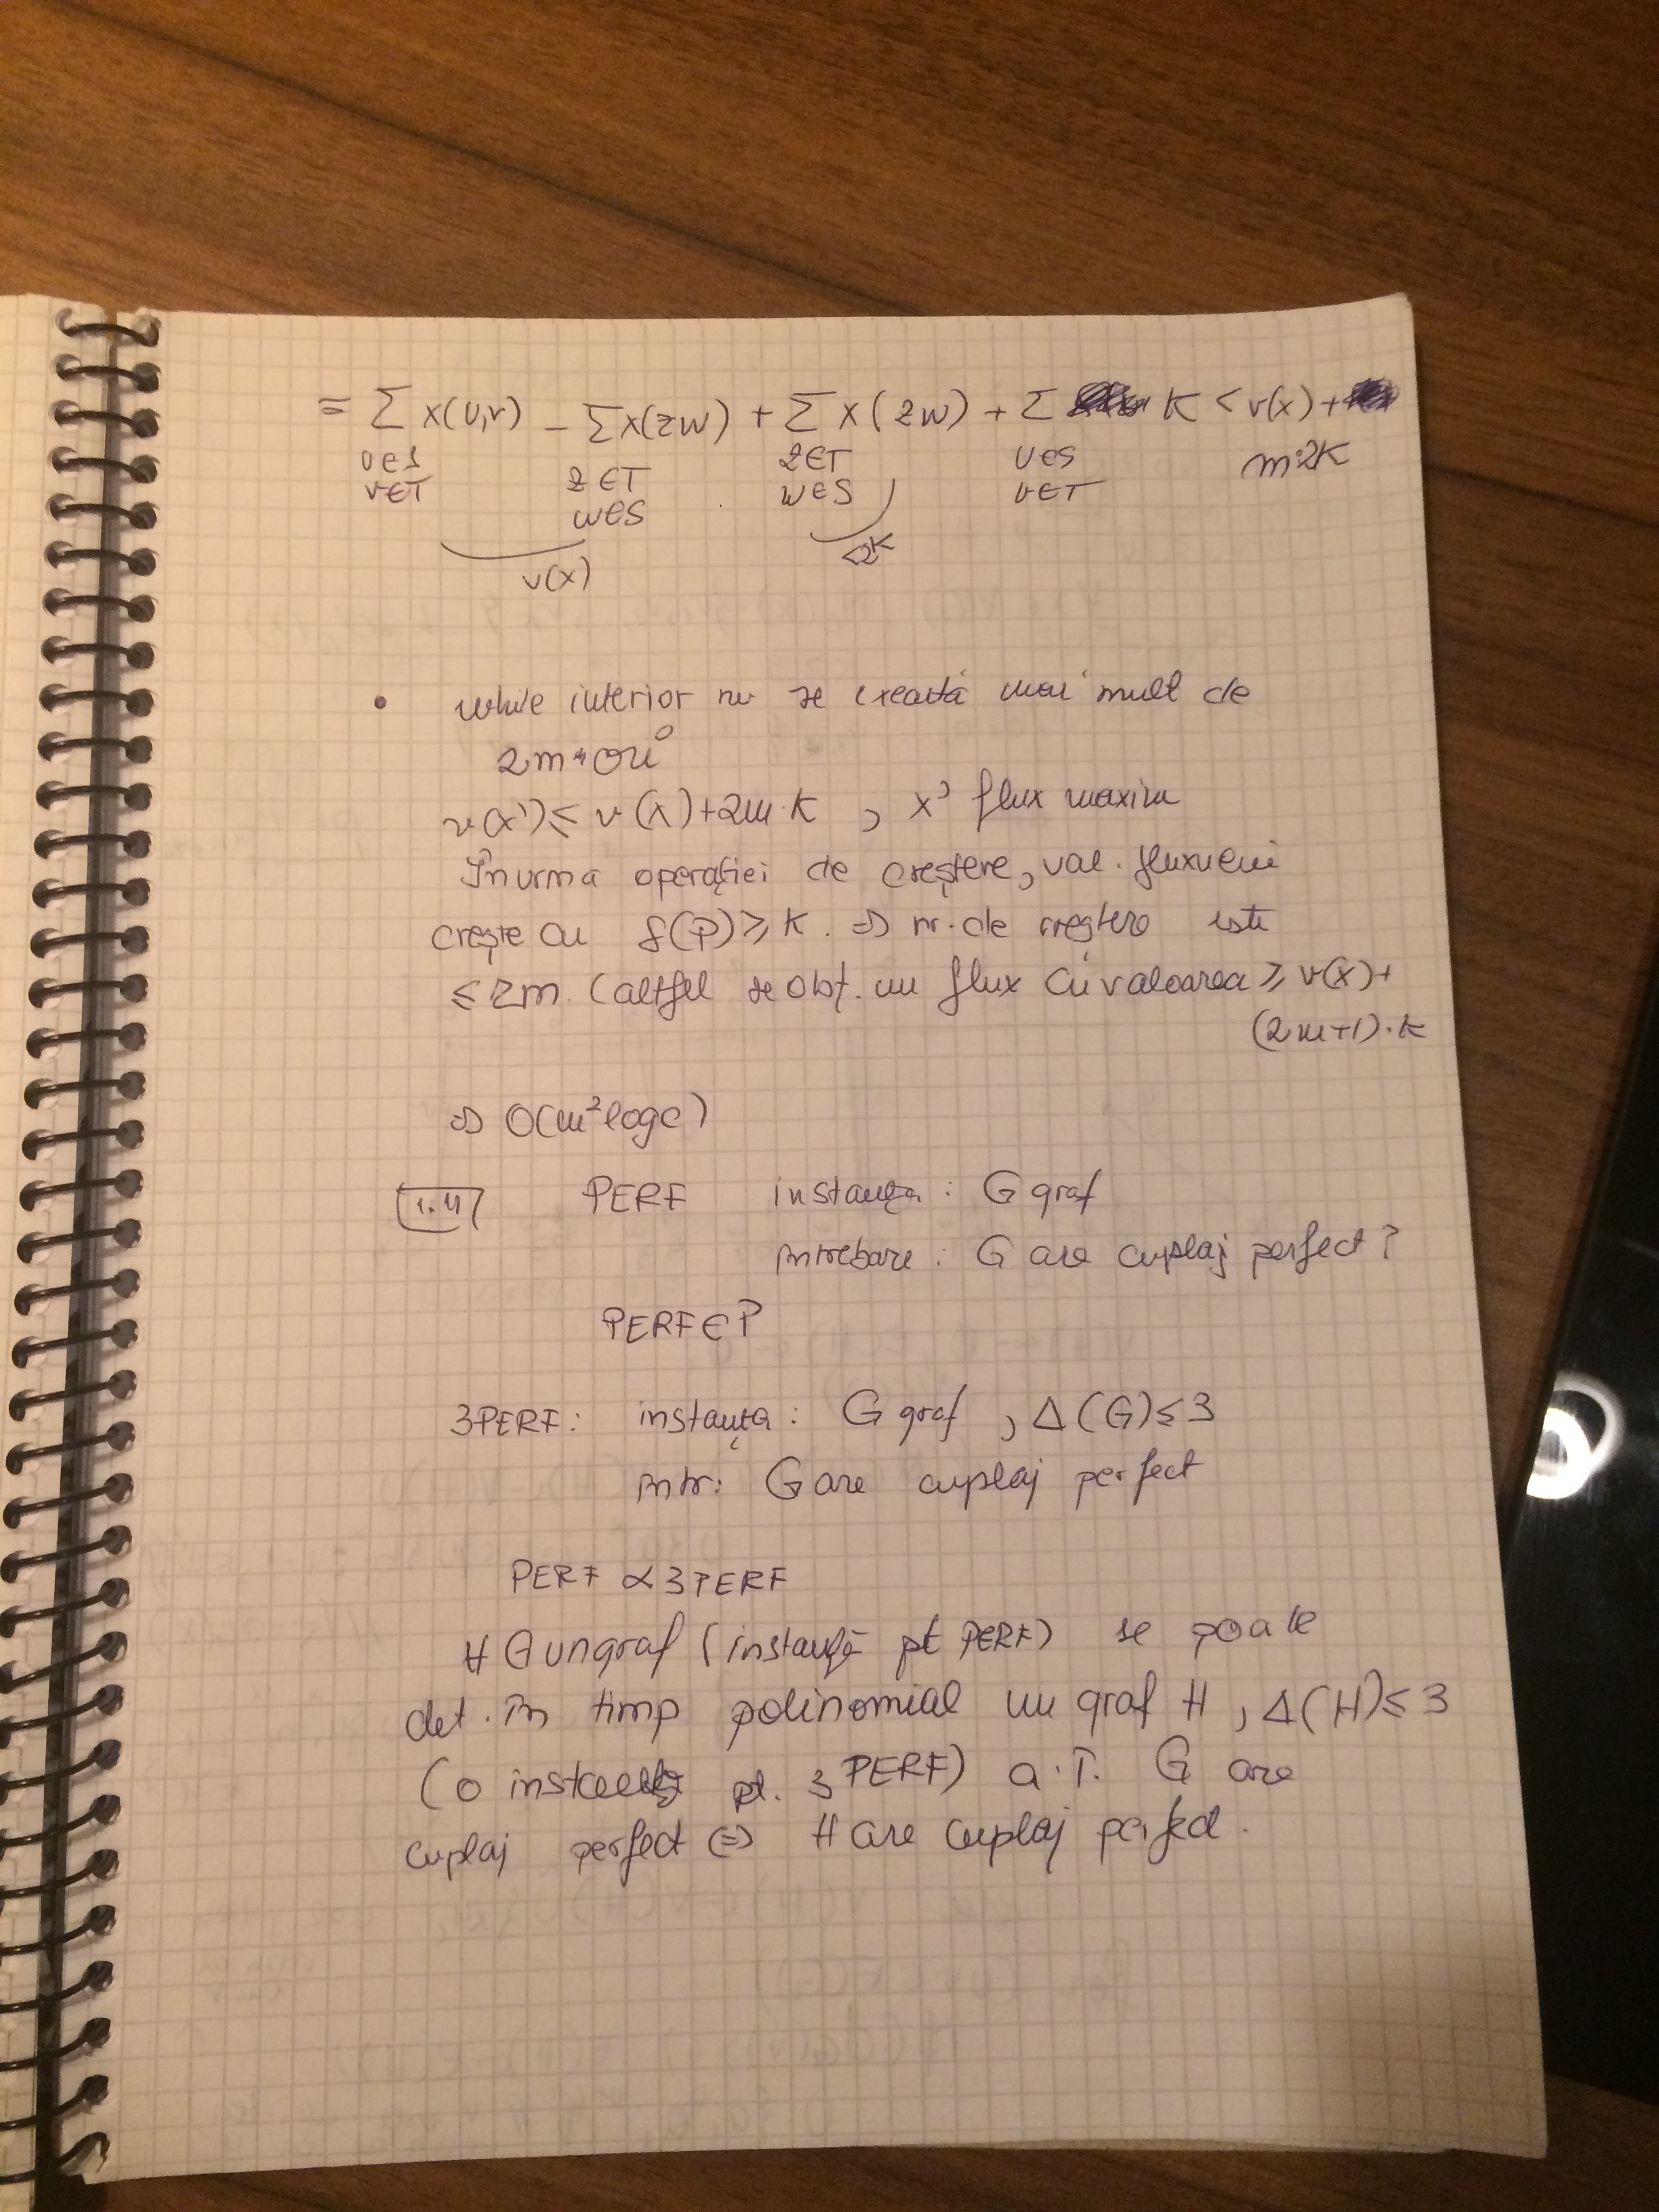 = Σ x(u,v) - Σ x(zw) + Σ x(zw) + Σ K < v(x) +
u∈S z∈T z∈T u∈S m·2K
v∈T w∈S w∈S v∈T
v(x) <2K
• while interior nu se execută mai mult de
2m ori
v(x') ≤ v(x)+2m·K , x' flux maxim
În urma operației de creștere, val. fluxului
crește cu δ(P) ≥ K. ⇒ nr. de creștere este
≤ 2m. (altfel se obț. un flux cu valoarea ≥ v(x)+
(2m+1)·K
⇒ O(m² log c)
1.4 PERF instanța : G graf
întrebare : G are cuplaj perfect?
PERF∈P
3PERF: instanța : G graf , Δ(G)≤3
intr: G are cuplaj perfect
PERF ∝ 3PERF
∀ G un graf (instanță pt PERF) se poate
det. în timp polinomial un graf H , Δ(H)≤3
(o instanță pt. 3PERF) a.î. G are
cuplaj perfect ⇔ H are cuplaj perfect.